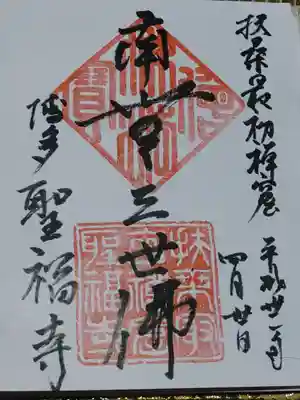 扶桑最初禅窟
平成丗一年
四月廿日
南無三世佛
博多聖福寺
扶桑最
初禅窟
聖福寺